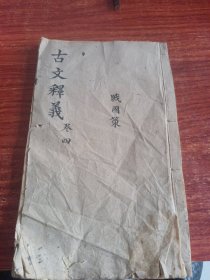 古文釋義
卷四
戰國策